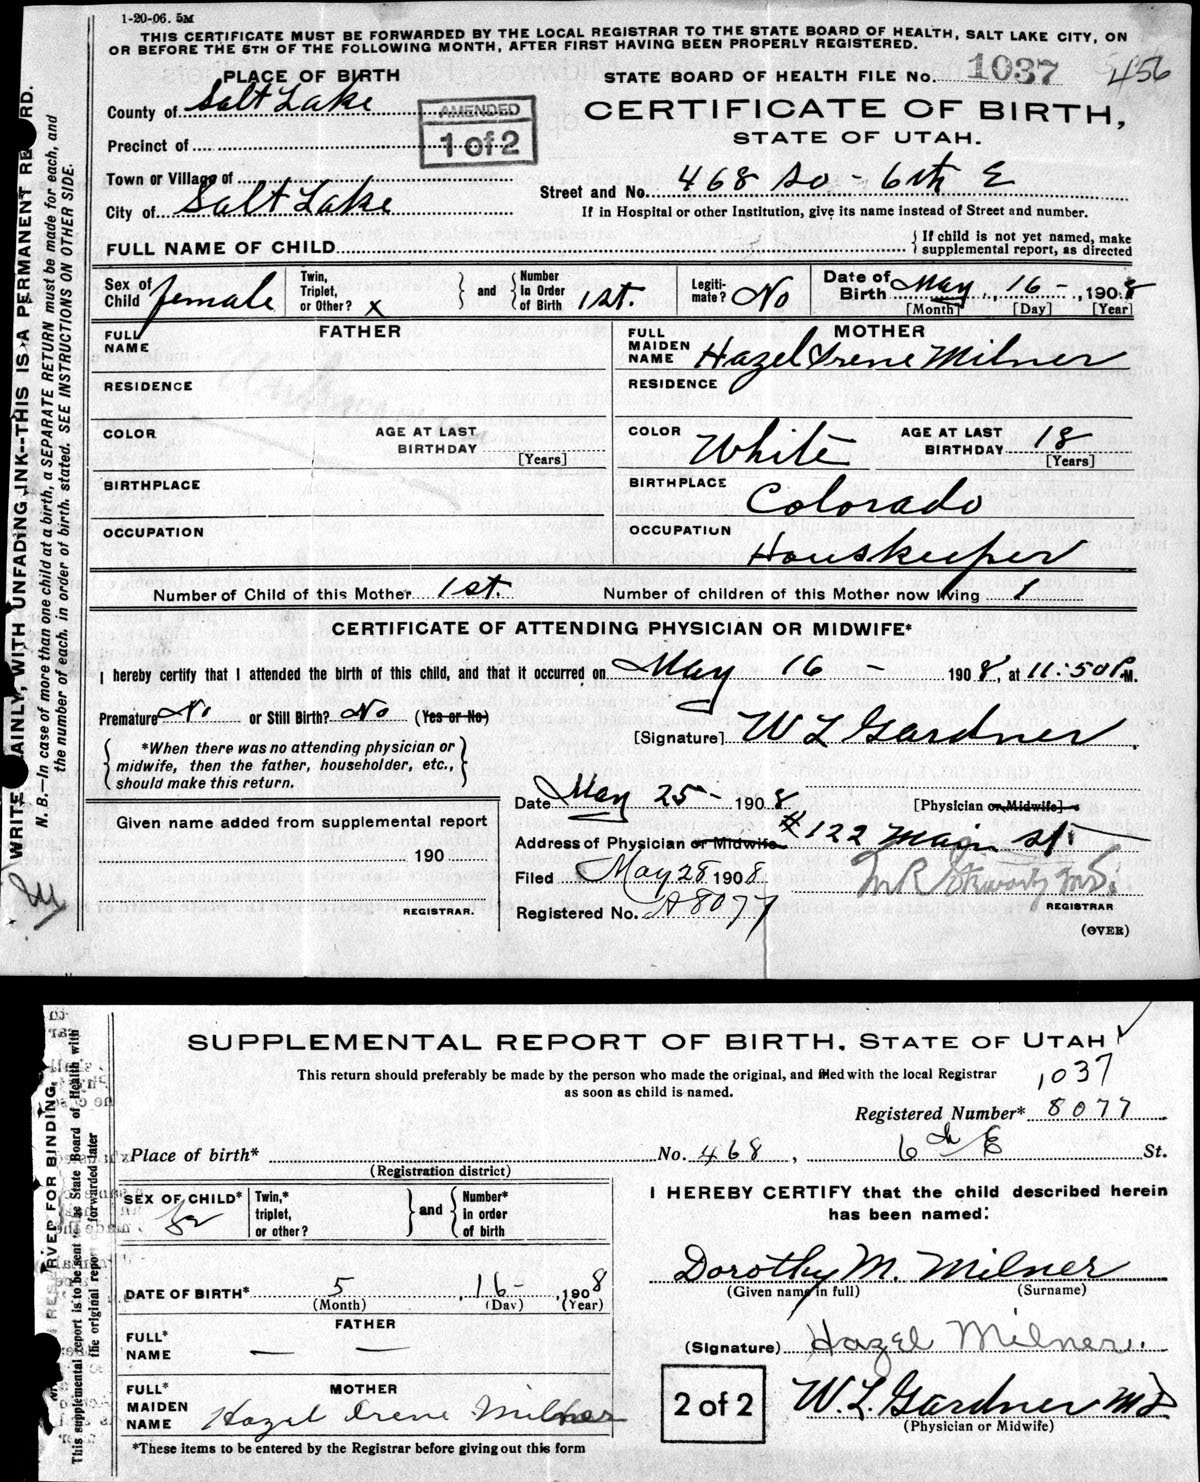 1-20-06. 5M
THIS CERTIFICATE MUST BE FORWARDED BY THE LOCAL REGISTRAR TO THE STATE BOARD OF HEALTH, SALT LAKE CITY, ON
OR BEFORE THE 5TH OF THE FOLLOWING MONTH, AFTER FIRST HAVING BEEN PROPERLY REGISTERED.
PLACE OF BIRTH
STATE BOARD OF HEALTH FILE No. 1037 456
County of Salt Lake
AMENDED
1 of 2
CERTIFICATE OF BIRTH,
STATE OF UTAH.
Precinct of
Town or Village of
Street and No. 468 So - 6th E
City of Salt Lake
If in Hospital or other Institution, give its name instead of Street and number.
FULL NAME OF CHILD
If child is not yet named, make
supplemental report, as directed
Sex of Child female
Twin, Triplet, or Other? x
and
Number In Order of Birth 1st.
Legiti-mate? No
Date of Birth May, 16 -, 1908
[Month] [Day] [Year]
FATHER
MOTHER
FULL NAME
FULL MAIDEN NAME Hazel Irene Milner
RESIDENCE
RESIDENCE
COLOR
AGE AT LAST BIRTHDAY
[Years]
COLOR White
AGE AT LAST BIRTHDAY 18
[Years]
BIRTHPLACE
BIRTHPLACE Colorado
OCCUPATION
OCCUPATION Houskeeper
Number of Child of this Mother 1st.
Number of children of this Mother now living 1
CERTIFICATE OF ATTENDING PHYSICIAN OR MIDWIFE*
I hereby certify that I attended the birth of this child, and that it occurred on May 16 - 1908, at 11:50 P.M.
Premature No or Still Birth? No (Yes or No)
[Signature] W L Gardner.
*When there was no attending physician or
midwife, then the father, householder, etc.,
should make this return.
Date May 25 - 1908
[Physician or Midwife]
Given name added from supplemental report
190
REGISTRAR.
Address of Physician or Midwife #122 Main St.
Filed May 28 1908
Registered No. A8077
REGISTRAR
(OVER)
WRITE PLAINLY, WITH UNFADING INK--THIS IS A PERMANENT RECORD.
N. B.—In case of more than one child at a birth, a SEPARATE RETURN must be made for each, and
the number of each, in order of birth, stated. SEE INSTRUCTIONS ON OTHER SIDE.
SUPPLEMENTAL REPORT OF BIRTH, STATE OF UTAH
This return should preferably be made by the person who made the original, and filed with the local Registrar
as soon as child is named.
1037
Registered Number* 8077
Place of birth* No. 468, 6th E St.
(Registration district)
SEX OF CHILD* fe
Twin,* triplet, or other?
and
Number* in order of birth
I HEREBY CERTIFY that the child described herein
has been named:
Dorothy M. Milner
(Given name in full) (Surname)
DATE OF BIRTH* 5, 16 -, 1908
(Month) (Day) (Year)
FATHER
FULL* NAME — —
(Signature) Hazel Milner.
MOTHER
FULL* MAIDEN NAME Hazel Irene Milner
2 of 2
W. L. Gardner MD
(Physician or Midwife)
*These items to be entered by the Registrar before giving out this form
RESERVED FOR BINDING.
This supplemental report is to be sent to State Board of Health with
the original report forwarded later